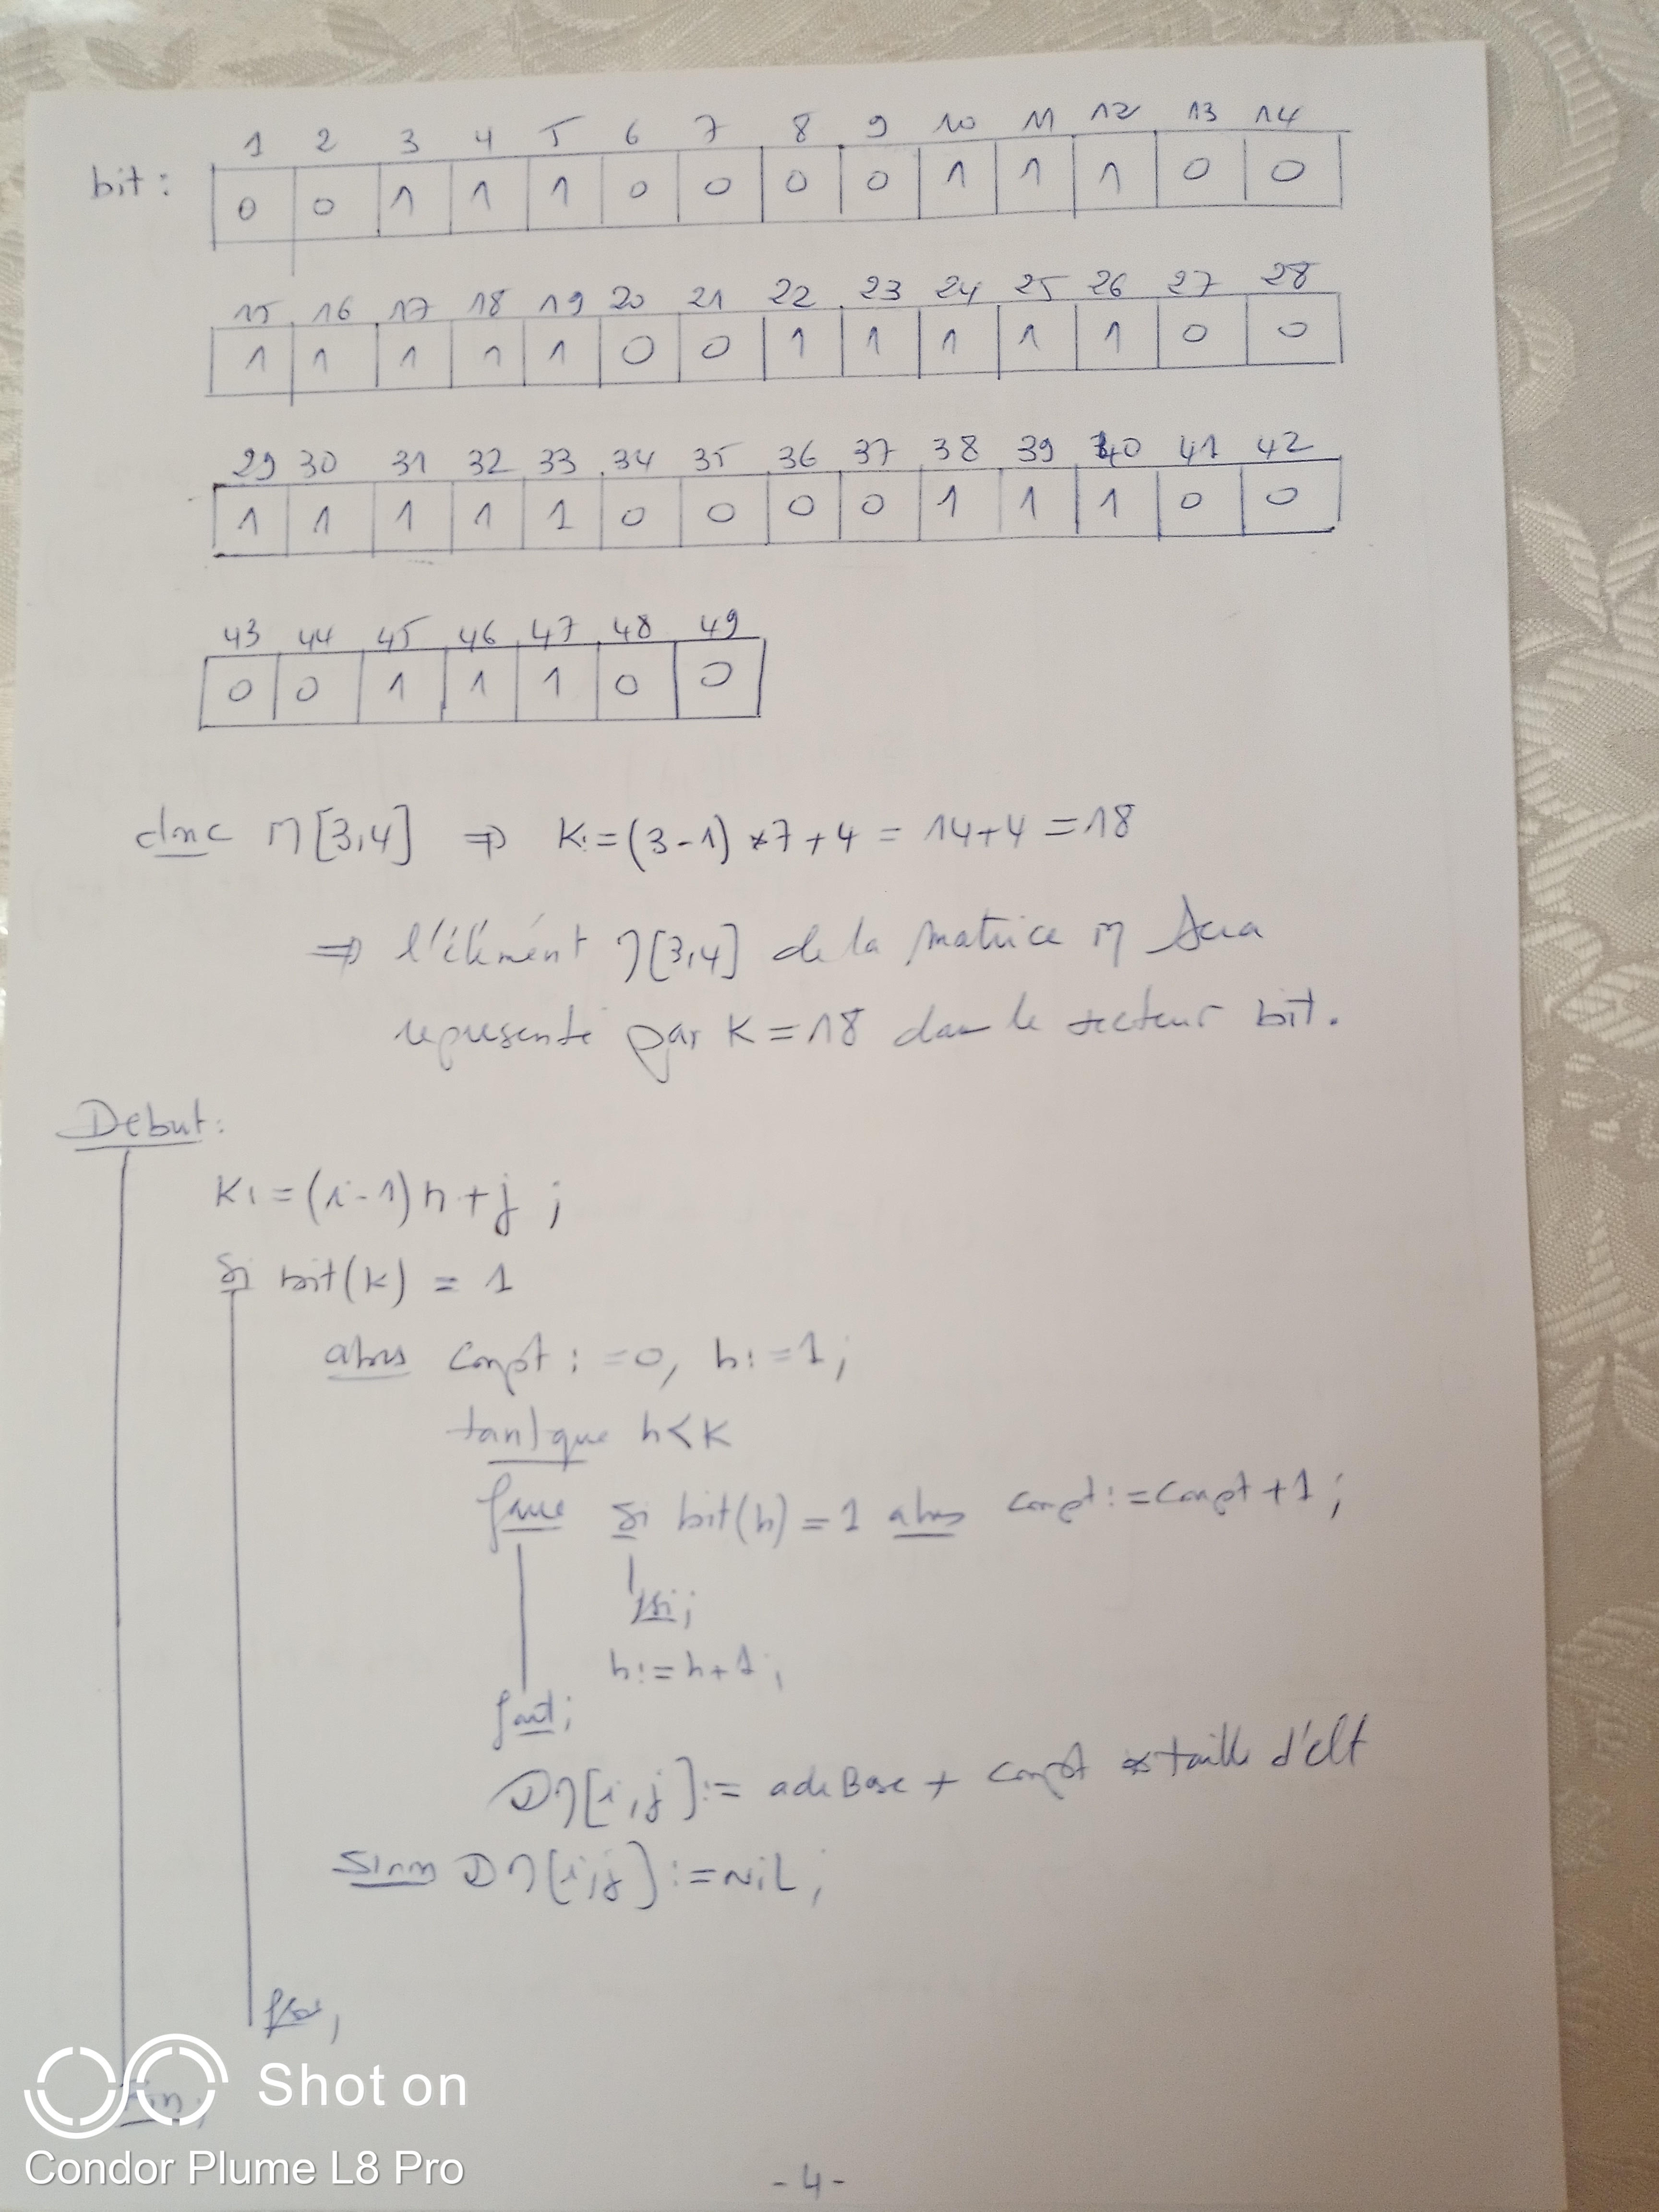 1 2 3 4 5 6 7 8 9 10 11 12 13 14
bit : 0 0 1 1 1 0 0 0 0 1 1 1 0 0
15 16 17 18 19 20 21 22 23 24 25 26 27 28
1 1 1 1 1 0 0 1 1 1 1 1 0 0
29 30 31 32 33 34 35 36 37 38 39 40 41 42
1 1 1 1 1 0 0 0 0 1 1 1 0 0
43 44 45 46 47 48 49
0 0 1 1 1 0 0
donc M[3,4] ⇒ K:=(3-1)*7+4 = 14+4 = 18
⇒ l'élément M[3,4] de la matrice M sera
représenté par K=18 dans le vecteur bit.
Début:
K:=(i-1)n+j ;
Si bit(k) = 1
alors compt:=0, h:=1;
tantque h<K
faire Si bit(h)=1 alors compt:=compt+1;
fsi;
h:=h+1;
fait;
@M[i,j]:= adeBase + compt * taille d'elt
Sinon @M[i,j]:=NiL;
fsi;
Fin;
Shot on
Condor Plume L8 Pro
-4-